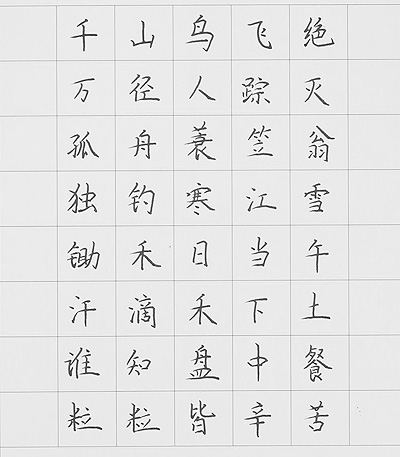 千山鸟飞绝
万径人踪灭
孤舟蓑笠翁
独钓寒江雪
锄禾日当午
汗滴禾下土
谁知盘中餐
粒粒皆辛苦